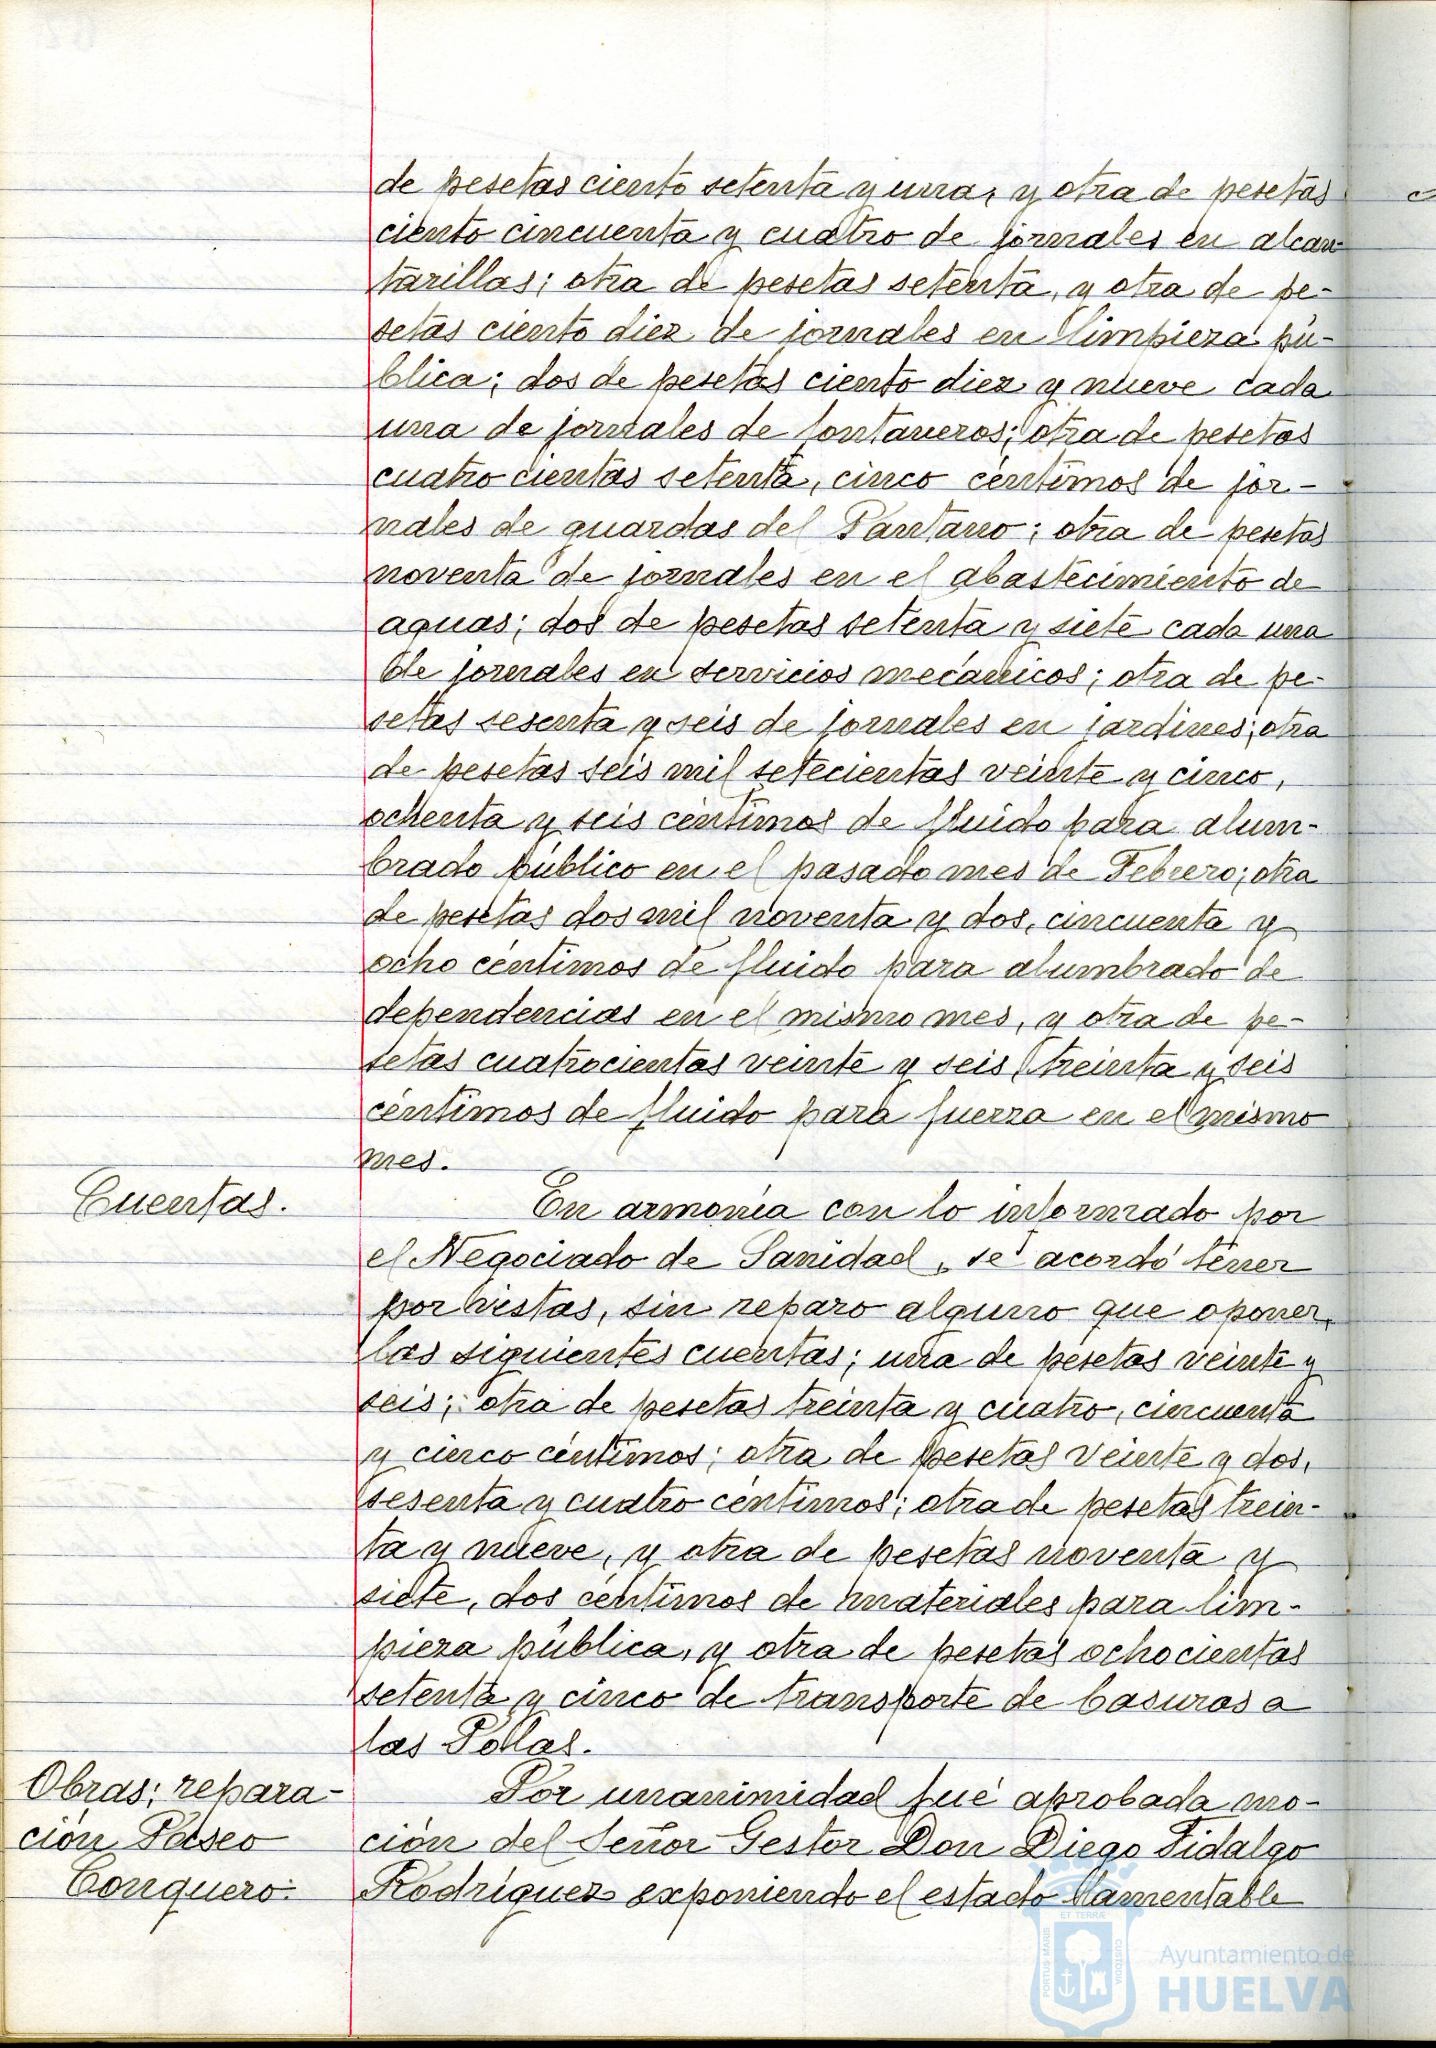 de pesetas ciento setenta y una, y otra de pesetas
ciento cincuenta y cuatro de jornales en alcan-
tarillas; otra de pesetas setenta, y otra de pe-
setas ciento diez de jornales en limpieza pú-
blica; dos de pesetas ciento diez y nueve cada
una de jornales de fontaneros; otra de pesetas
cuatrocientas setenta, cinco céntimos de jor-
nales de guardas del Pantano; otra de pesetas
noventa de jornales en el abastecimiento de
aguas; dos de pesetas setenta y siete cada una
de jornales en servicios mecánicos; otra de pe-
setas sesenta y seis de jornales en jardines; otra
de pesetas seis mil setecientas veinte y cinco,
ochenta y seis céntimos de fluido para alum-
brado público en el pasado mes de Febrero; otra
de pesetas dos mil noventa y dos, cincuenta y
ocho céntimos de fluido para alumbrado de
dependencias en el mismo mes, y otra de pe-
setas cuatrocientas veinte y seis, treinta y seis
céntimos de fluido para fuerza en el mismo
mes.
Cuentas.
En armonía con lo informado por
el Negociado de Sanidad, se acordó tener
por vistas, sin reparo alguno que oponer,
las siguientes cuentas; una de pesetas veinte y
seis; otra de pesetas treinta y cuatro, cincuenta
y cinco céntimos; otra de pesetas veinte y dos,
sesenta y cuatro céntimos; otra de pesetas trein-
ta y nueve, y otra de pesetas noventa y
siete, dos céntimos de materiales para lim-
pieza pública, y otra de pesetas ochocientas
setenta y cinco de transporte de basuras a
las Pollas.
Obras; repara-
ción Paseo
Conquero.
Por unanimidad fué aprobada mo-
ción del Señor Gestor Don Diego Fidalgo
Rodríguez exponiendo el estado lamentable
ET TERRÆ
PORTUS MARIS
CUSTODIA
Ayuntamiento de
HUELVA